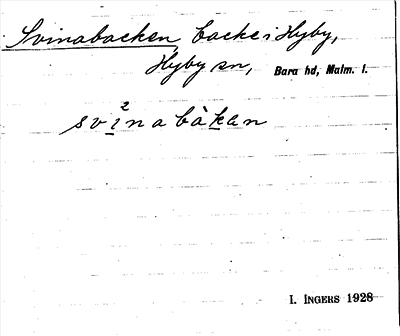 Svinabacken, backe i Hyby,
Hyby sn, Bara hd, Malm. l.
svi²nabàkan
I. INGERS 1928